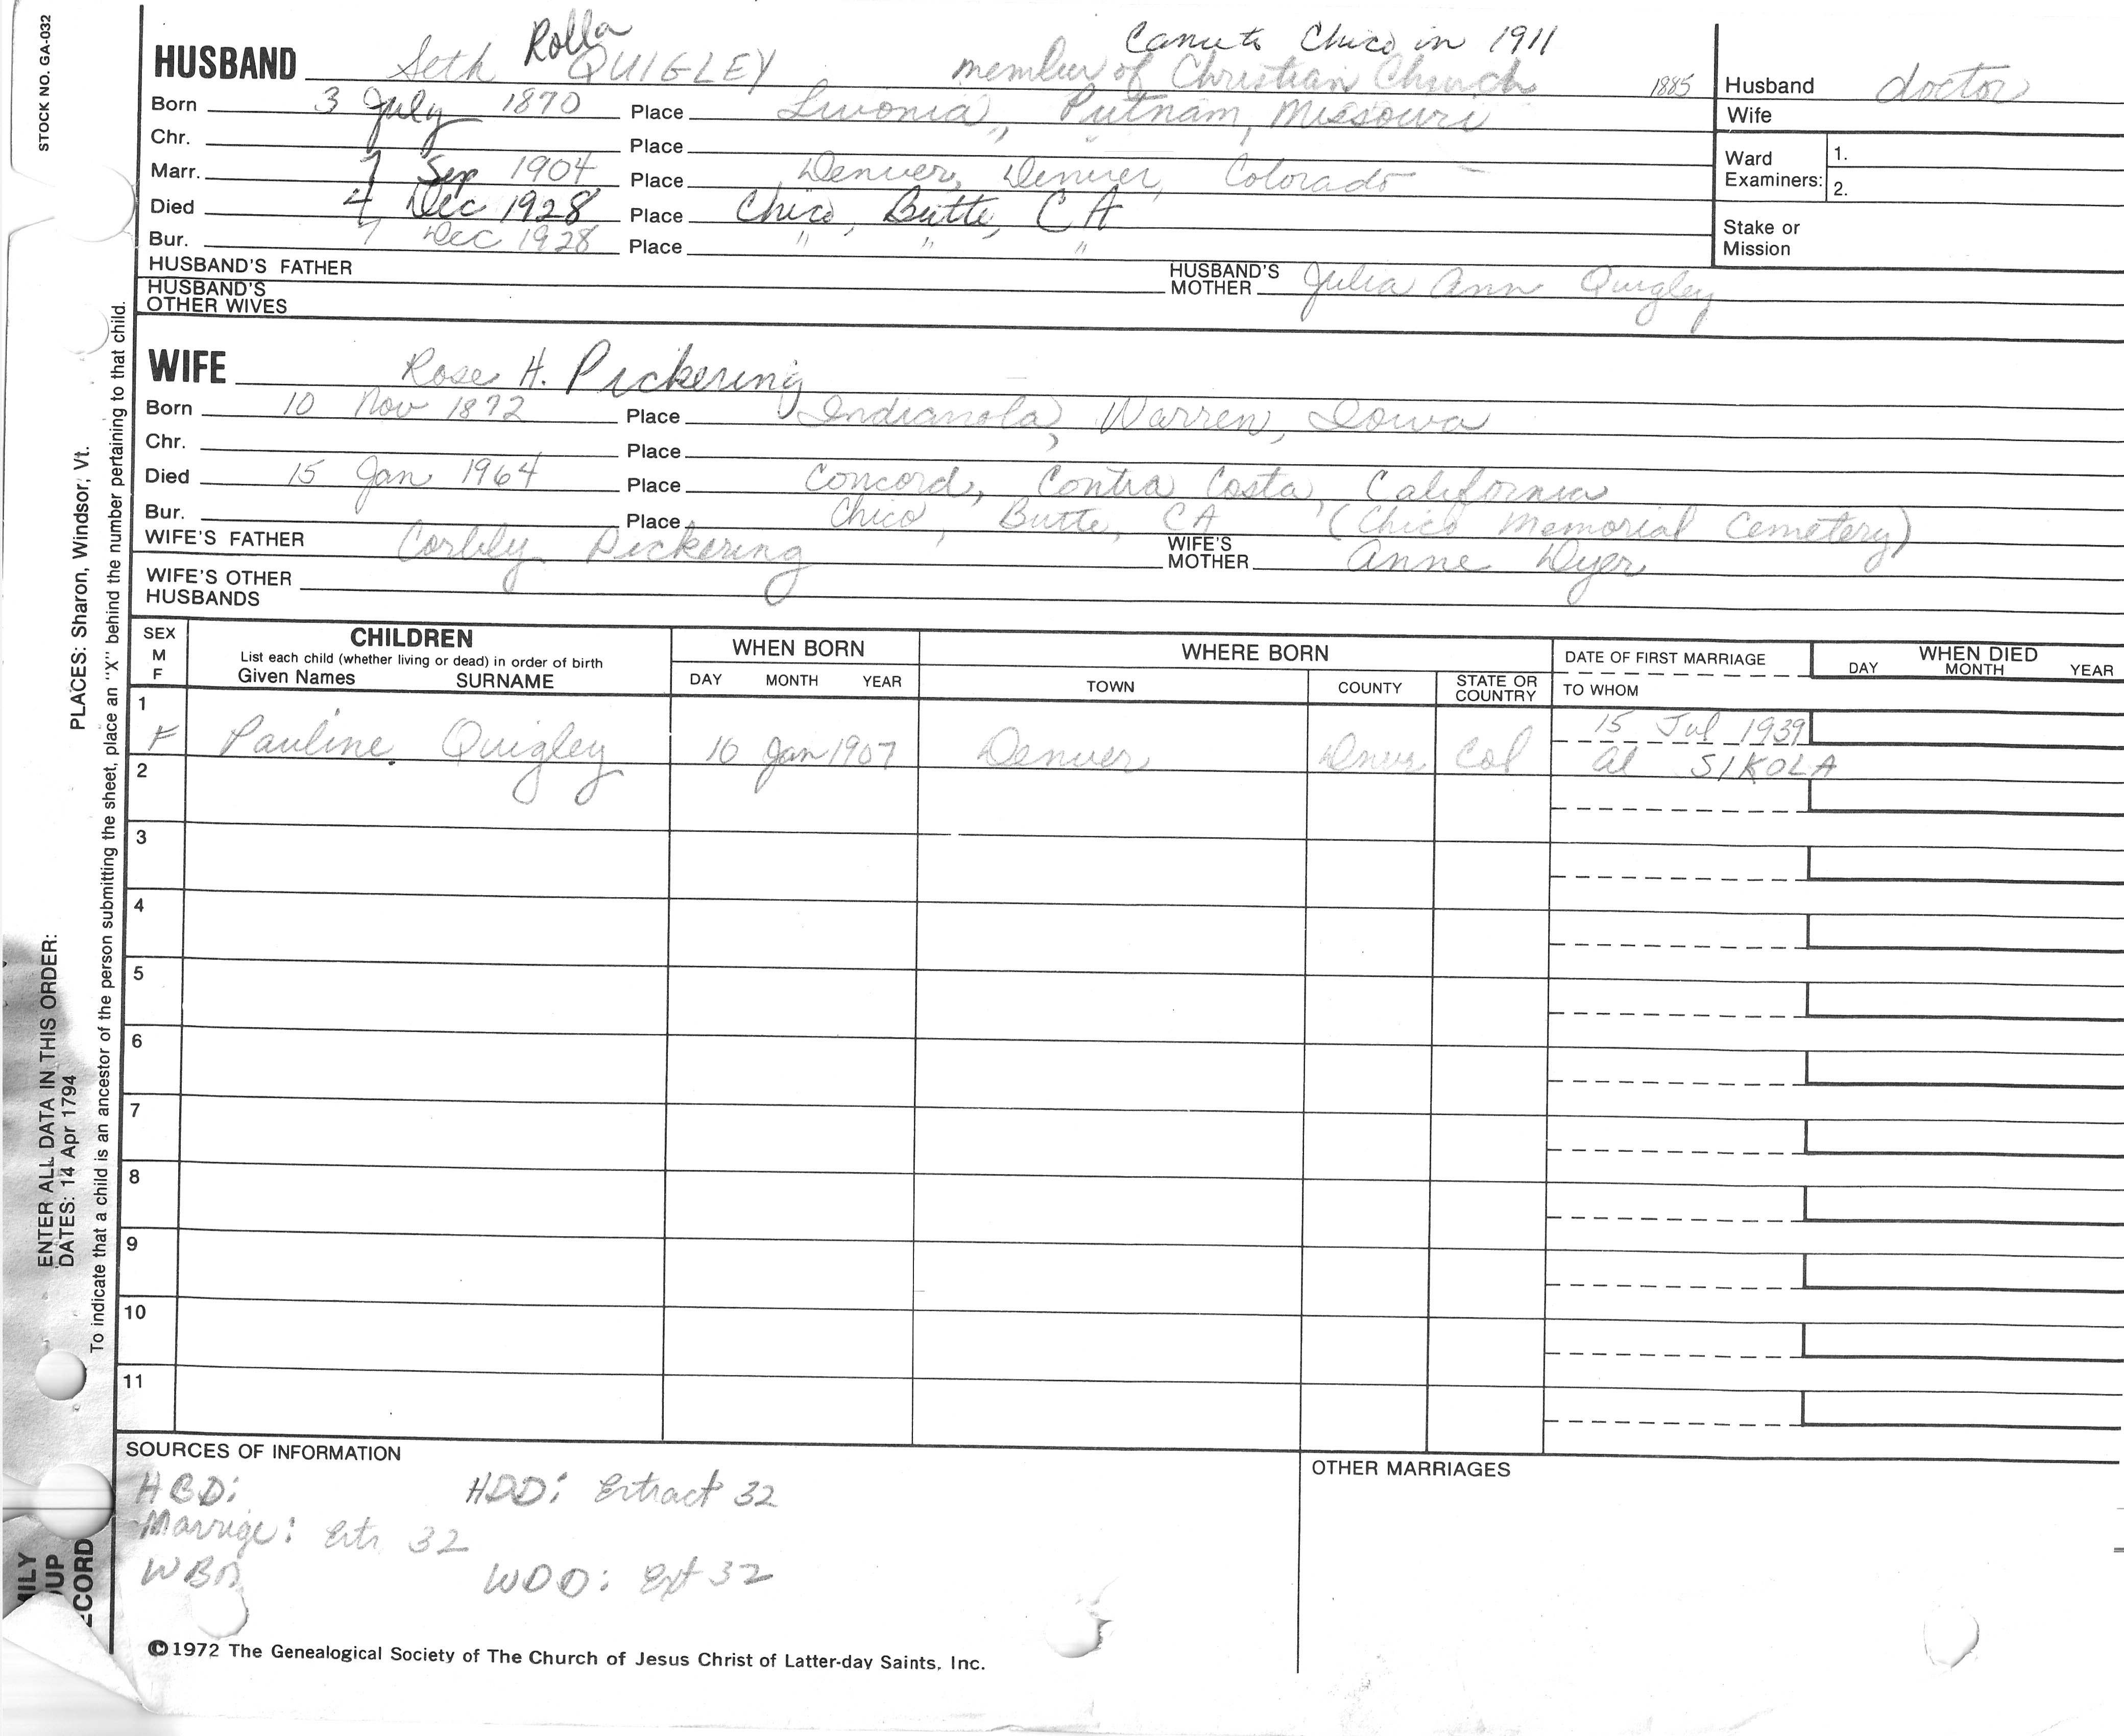 STOCK NO. GA-032
Rolla
Came to Chico in 1911
HUSBAND Seth QUIGLEY member of Christian Church 1885 Husband doctor
Born 3 July 1870 Place Livonia, Putnam, Missouri Wife
Chr. Place Ward Examiners: 1.
Marr. 7 Sep 1904 Place Denver, Denver, Colorado 2.
Died 4 Dec 1928 Place Chico, Butte, CA Stake or Mission
Bur. 7 Dec 1928 Place " " "
HUSBAND'S FATHER HUSBAND'S MOTHER Julia Ann Quigley
HUSBAND'S OTHER WIVES
WIFE Rose H. Pickering
Born 10 Nov 1872 Place Indianola, Warren, Iowa
Chr. Place
Died 15 Jan 1964 Place Concord, Contra Costa, California
Bur. Place Chico, Butte, CA (Chico Memorial Cemetery)
WIFE'S FATHER Corbly Pickering WIFE'S MOTHER Anne Dyer
WIFE'S OTHER HUSBANDS
SEX M F CHILDREN WHEN BORN WHERE BORN DATE OF FIRST MARRIAGE WHEN DIED
List each child (whether living or dead) in order of birth
Given Names SURNAME DAY MONTH YEAR TOWN COUNTY STATE OR COUNTRY TO WHOM DAY MONTH YEAR
1 15 Jul 1939
F Pauline Quigley 16 Jan 1907 Denver Dnvr Col Al SIKOLA
2
3
4
5
6
7
8
9
10
11
SOURCES OF INFORMATION OTHER MARRIAGES
HBD: HDD: Extract 32
Marrige: Ext 32
WBD WDD: Ext 32
©1972 The Genealogical Society of The Church of Jesus Christ of Latter-day Saints, Inc.
ENTER ALL DATA IN THIS ORDER:
DATES: 14 Apr 1794 PLACES: Sharon, Windsor, Vt.
To indicate that a child is an ancestor of the person submitting the sheet, place an "X" behind the number pertaining to that child.